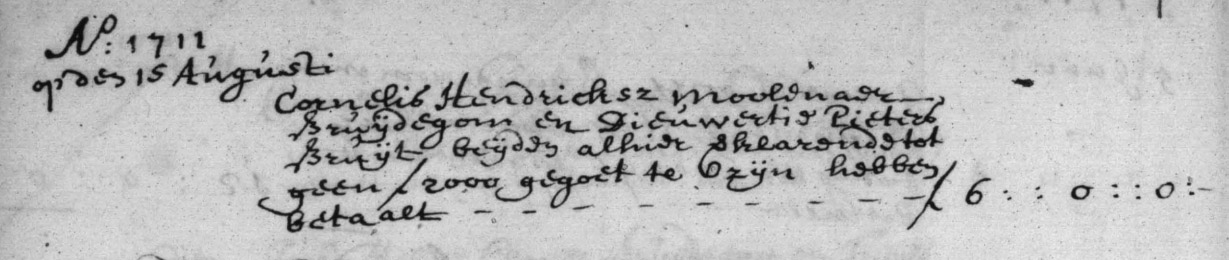 No: 1711
op den 15 Augusti
Cornelis Hendricksz Moolenaer
Bruijdegom en Dieuwertie Pieters
Bruijt beijden alhier eklarende tot
geen ƒ 2000 gegoet te zijn hebben
betaalt - - - - - - - - - ƒ 6 : : 0 : : 0 : -